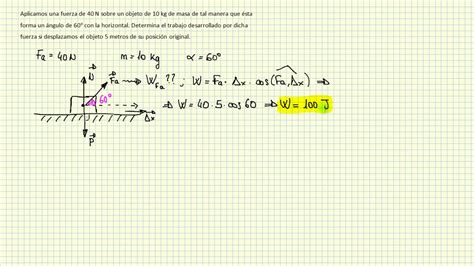 Aplicamos una fuerza de 40 N sobre un objeto de 10 kg de masa de tal manera que ésta
forma un ángulo de 60º con la horizontal. Determina el trabajo desarrollado por dicha
fuerza si desplazamos el objeto 5 metros de su posición original.
Fa = 40N m = 10 kg α = 60°
N Fa → W_Fa ?? ; W = Fa · Δx · cos(Fa, Δx) ⇒
60° ⇒ W = 40 · 5 · cos 60 ⇒ W = 100 J
Δx
P